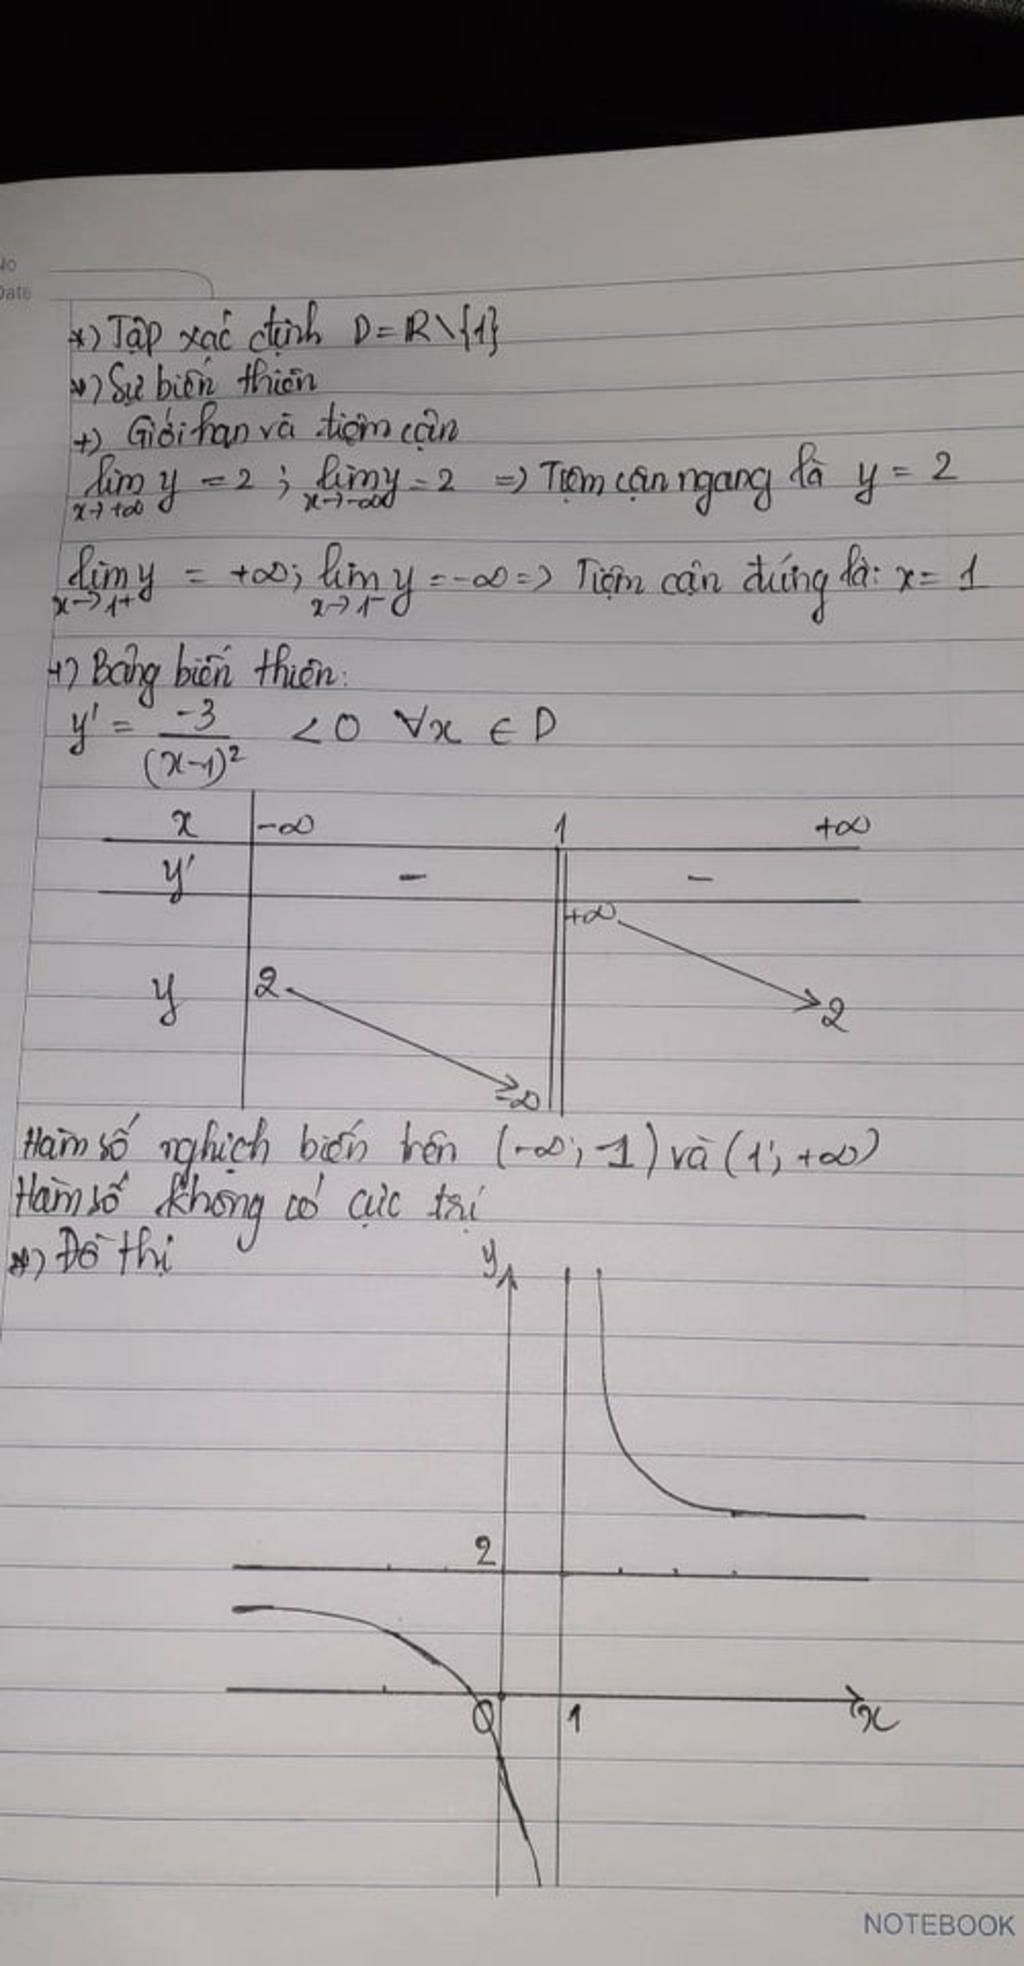 No
Date
*) Tập xác định D = R\{1}
*) Sự biến thiên
+) Giới hạn và tiệm cận
lim y = 2 ; lim y = 2 => Tiệm cận ngang là y = 2
x→+∞ x→-∞
lim y = +∞; lim y = -∞ => Tiệm cận đứng là: x = 1
x→1+ x→1-
+) Bảng biến thiên:
y' = -3/(x-1)² < 0 ∀x ∈ D
x -∞ 1 +∞
y' - -
+∞
y 2 2
-∞
Hàm số nghịch biến trên (-∞; 1) và (1; +∞)
Hàm số không có cực trị
*) Đồ thị
y
2
O 1 x
NOTEBOOK